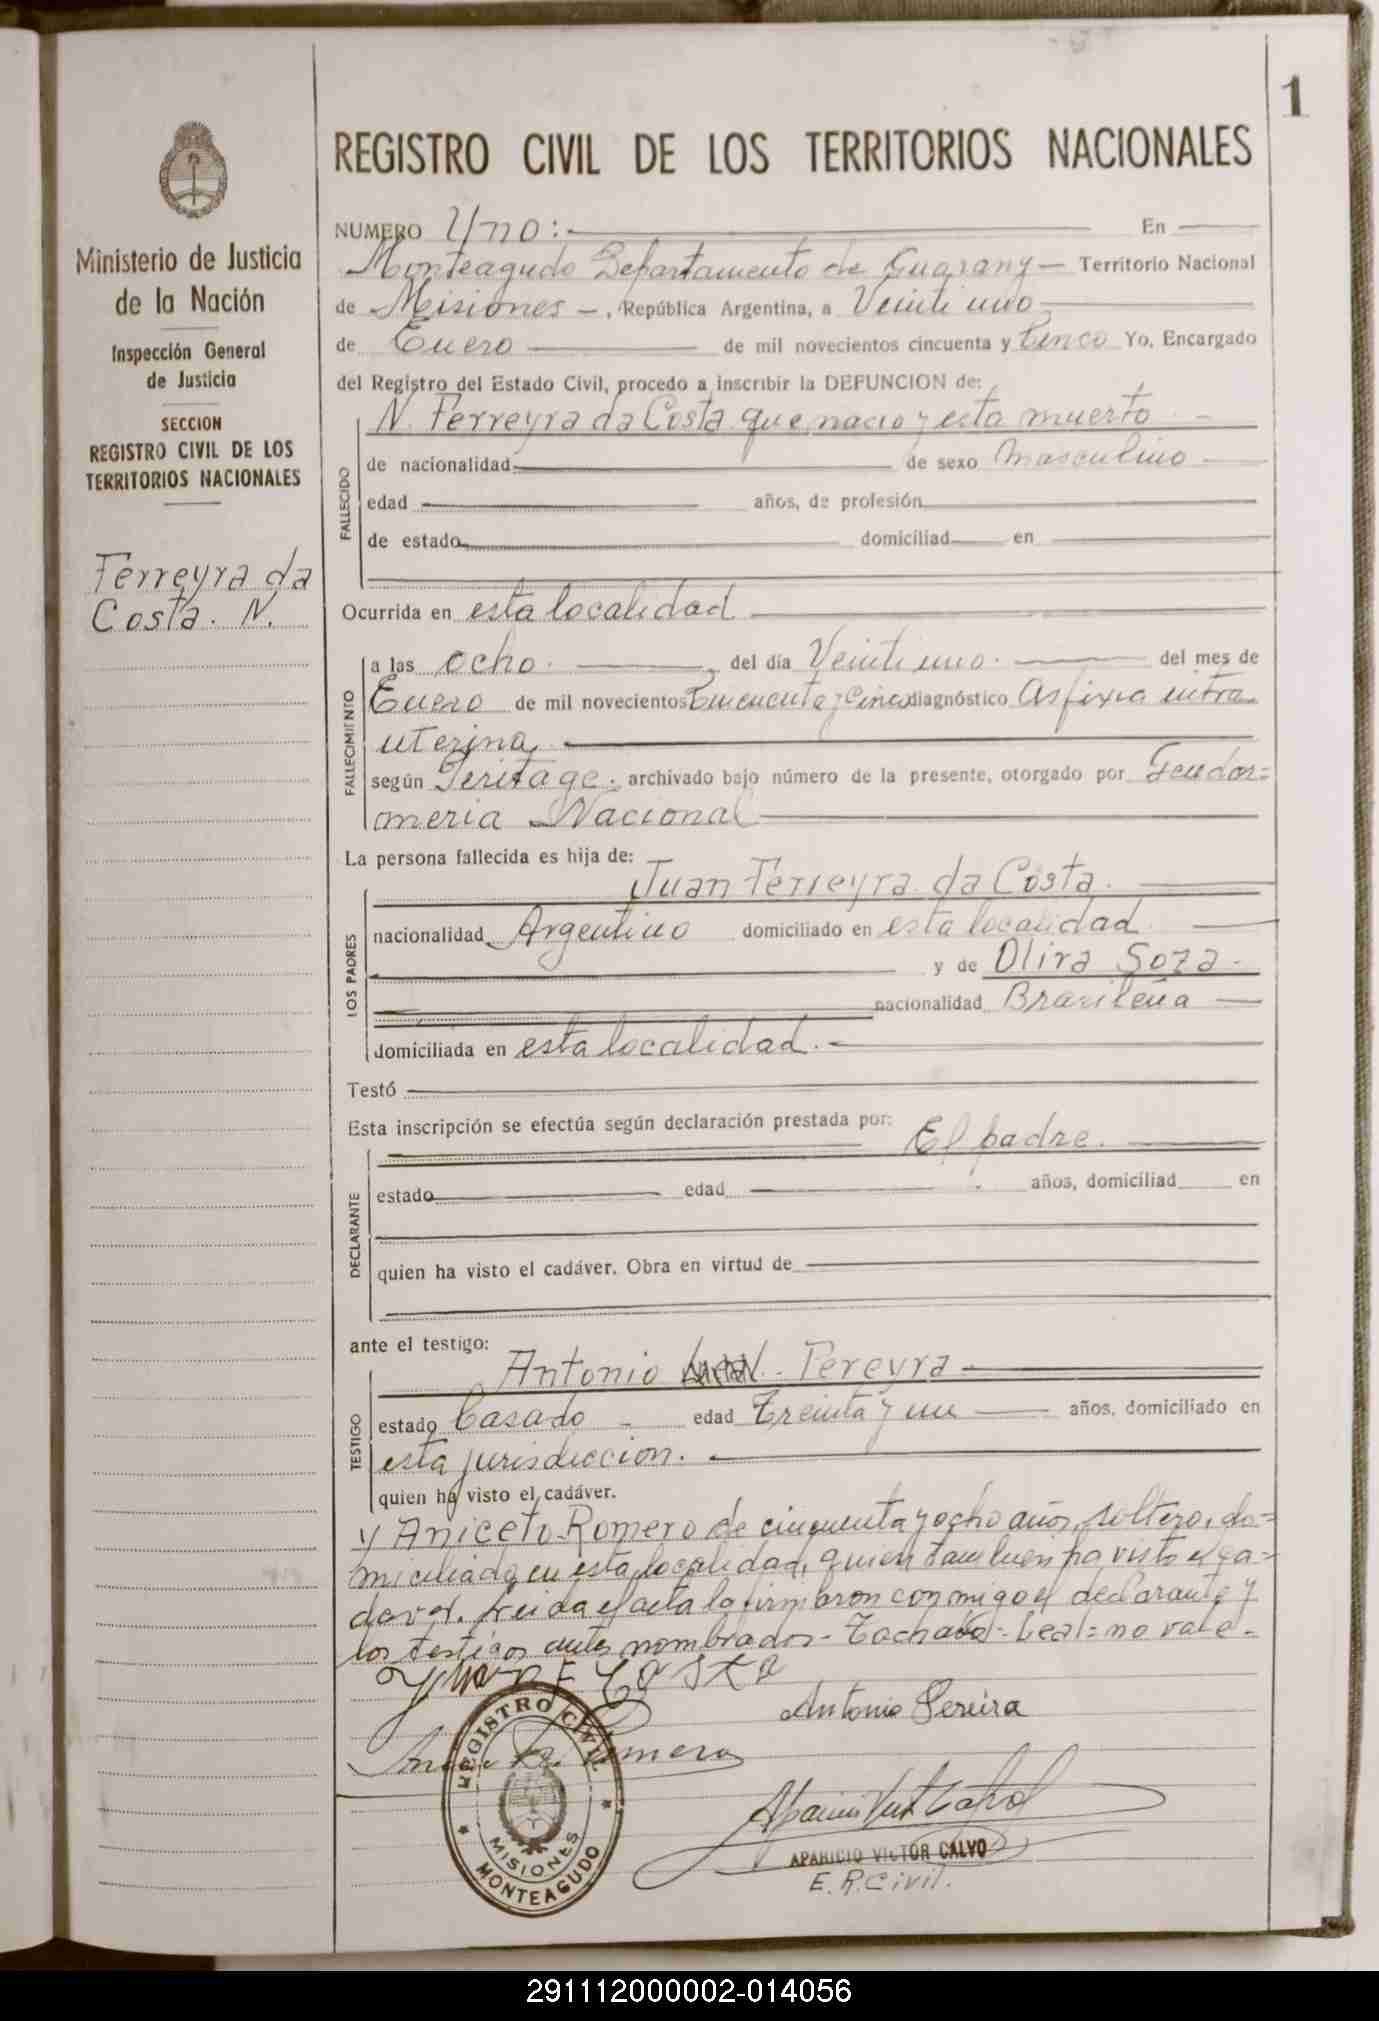 1
REGISTRO CIVIL DE LOS TERRITORIOS NACIONALES
Ministerio de Justicia
de la Nación
Inspección General
de Justicia
SECCION
REGISTRO CIVIL DE LOS
TERRITORIOS NACIONALES
Ferreyra da
Costa. N.
NUMERO Uno: En
Monteagudo Departamento de Guarany - Territorio Nacional
de Misiones -, República Argentina, a Veintiuno
de Enero de mil novecientos cincuenta y Cinco Yo, Encargado
del Registro del Estado Civil, procedo a inscribir la DEFUNCION de:
N. Ferreyra da Costa que nacio y esta muerto
FALLECIDO
de nacionalidad de sexo Masculino
edad años, de profesión
de estado domiciliad en
Ocurrida en esta localidad
FALLECIMIENTO
a las ocho. del día Veintiuno. del mes de
Enero de mil novecientos Cincuenta y Cinco diagnóstico Asfixia intra
uterina,
según Peritage. archivado bajo número de la presente, otorgado por Gendar=
meria Nacional
La persona fallecida es hija de:
Juan Ferreyra da Costa.
LOS PADRES
nacionalidad Argentino domiciliado en esta localidad
y de Olira Soza.
nacionalidad Brasileña
domiciliada en esta localidad.
Testó
Esta inscripción se efectúa según declaración prestada por:
El padre.
DECLARANTE
estado edad años, domiciliad en
quien ha visto el cadáver. Obra en virtud de
ante el testigo:
Antonio Pereyra
TESTIGO
estado Casado edad Treinta y un años, domiciliado en
esta jurisdiccion.
quien ha visto el cadáver.
y Aniceto Romero de cincuenta y ocho años, soltero, do=
miciliado en esta localidad, quien tambien ha visto el ca=
daver. Leida el acta la firmaron conmigo el declarante y
los testigos antes nombrados - Tachado=Leal=no vale-
Juan F Costa
Antonio Pereira
Romero
REGISTRO CIVIL
MISIONES
MONTEAGUDO
APARICIO VICTOR CALVO
E. R. Civil.
291112000002-014056